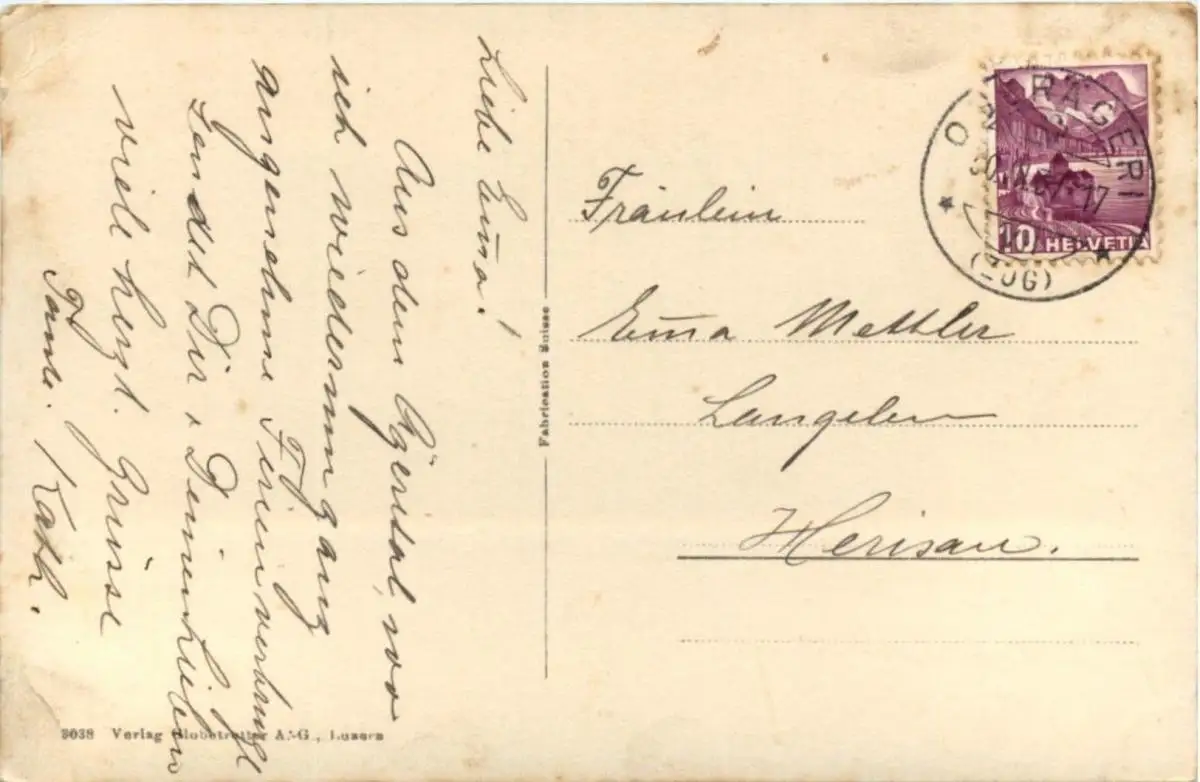 Liebe Em̄a!
Aus dem Ägerital, wo
ich wiederum ganz
angenehme Ferien verbringe
sendet Dir & Deinen Lieben
viele herzl. Grüsse
Tante. Kath.
Fabrication Suisse
Fräulein
Em̄a Mettler
Langelen
Herisau.
OBERÄGERI
(ZUG)
10 HELVETIA
9038 Verlag Globetrotter A.-G., Luzern